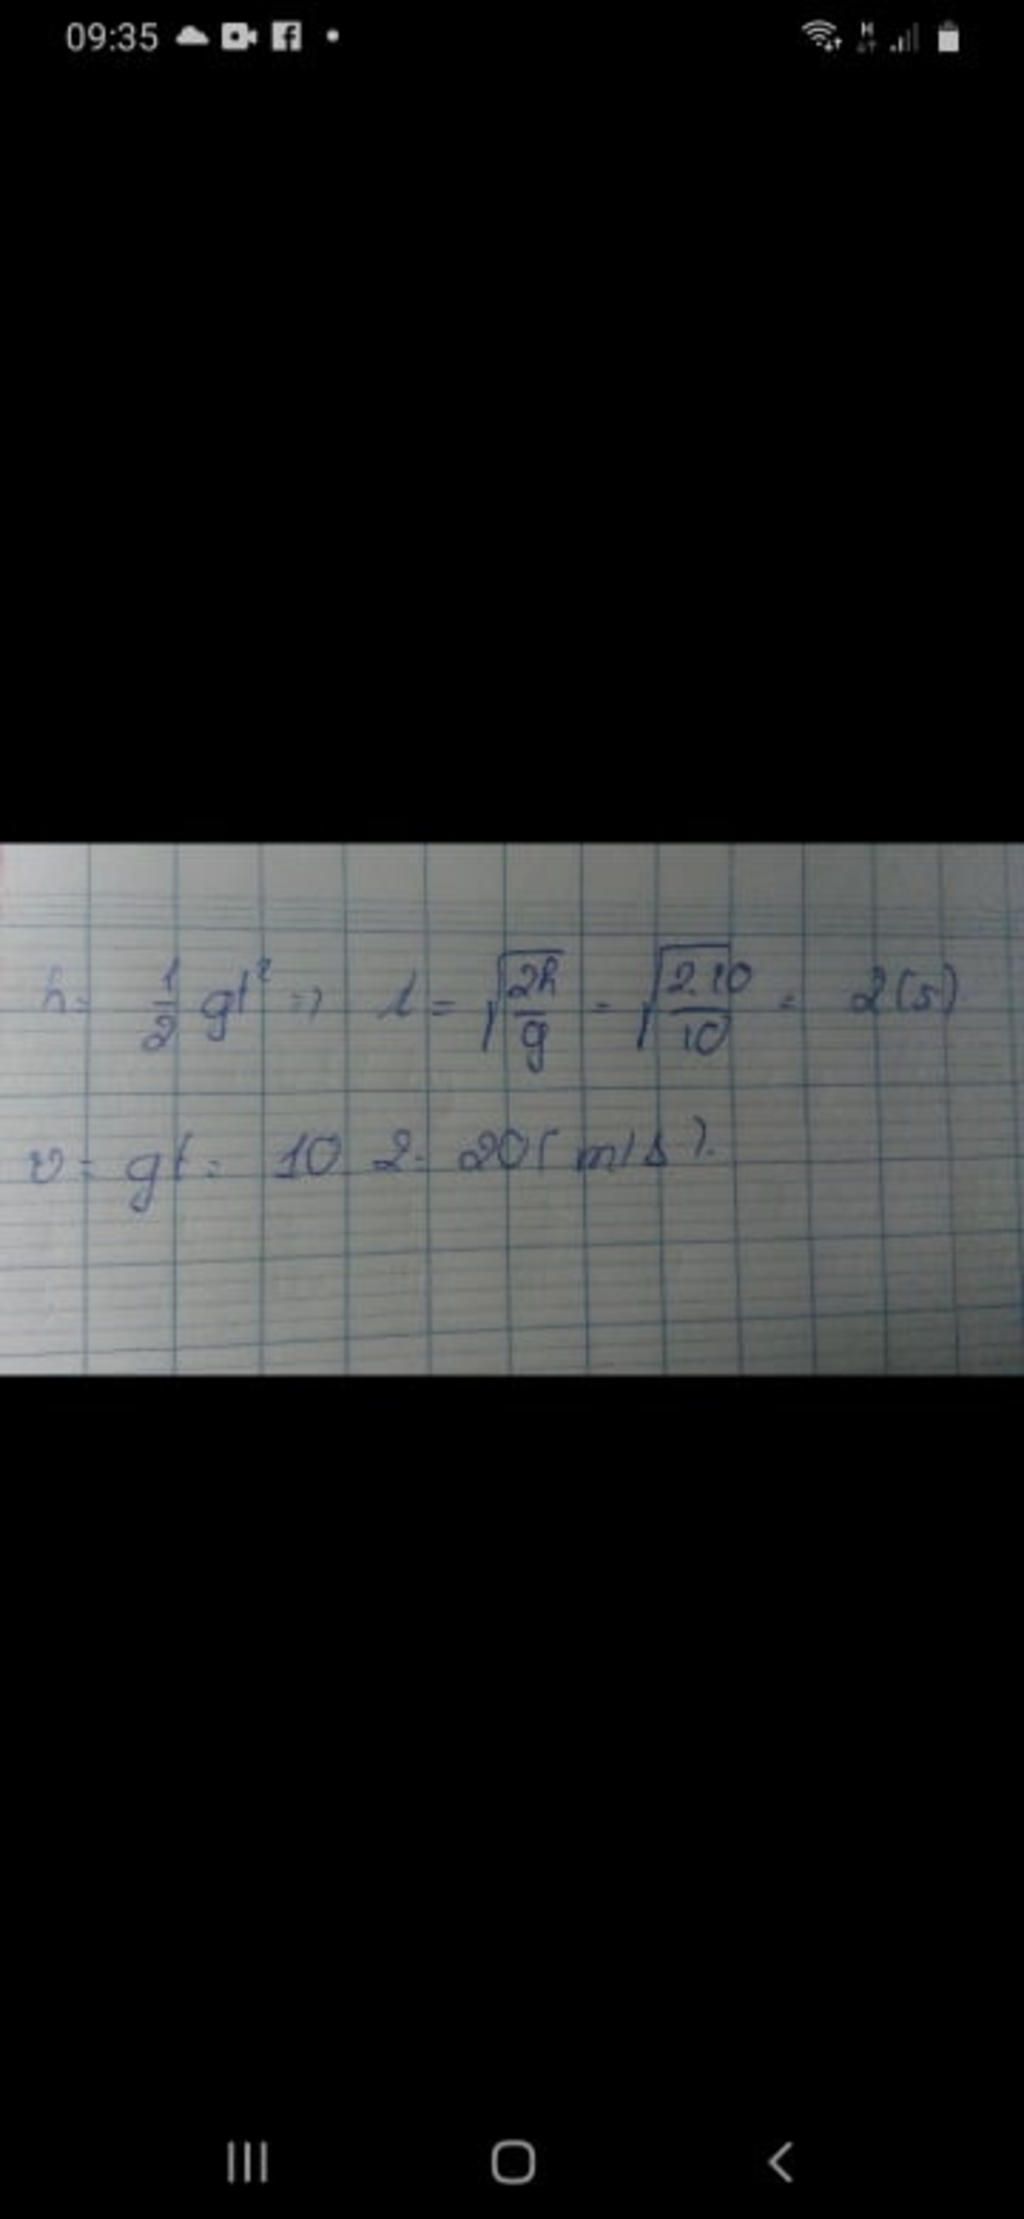 09:35
h = 1/2 gt² => t = √(2h/g) = √(2.20/10) = 2(s)
v = gt = 10 2 = 20 (m/s).